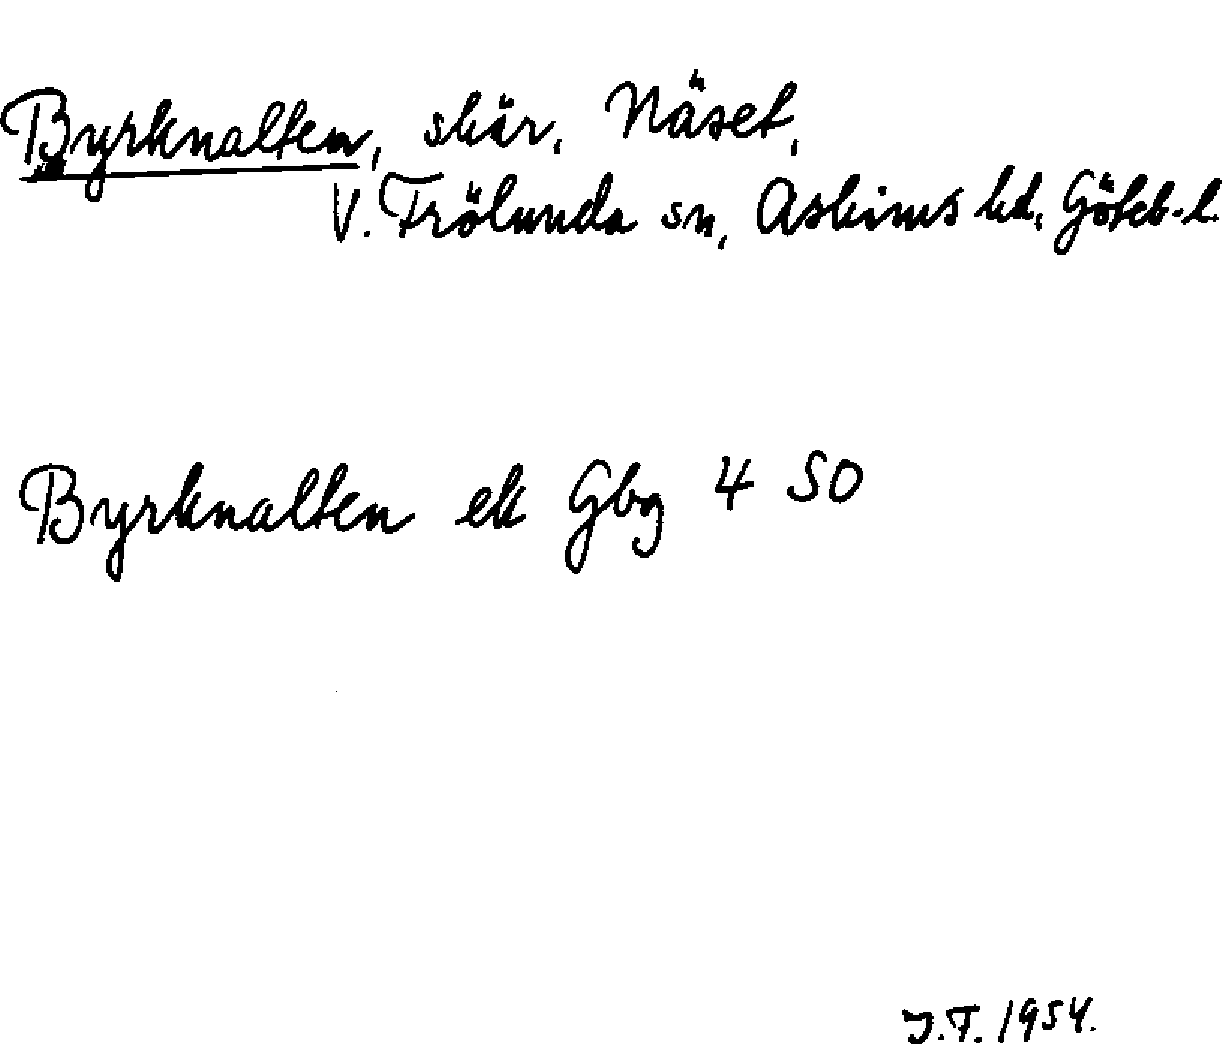 Byrknalten, skär, Näset,
V. Frölunda sn, Askims hd, Göteb. l.
Byrknalten ek Gbg 4 SO
J.T. 1954.